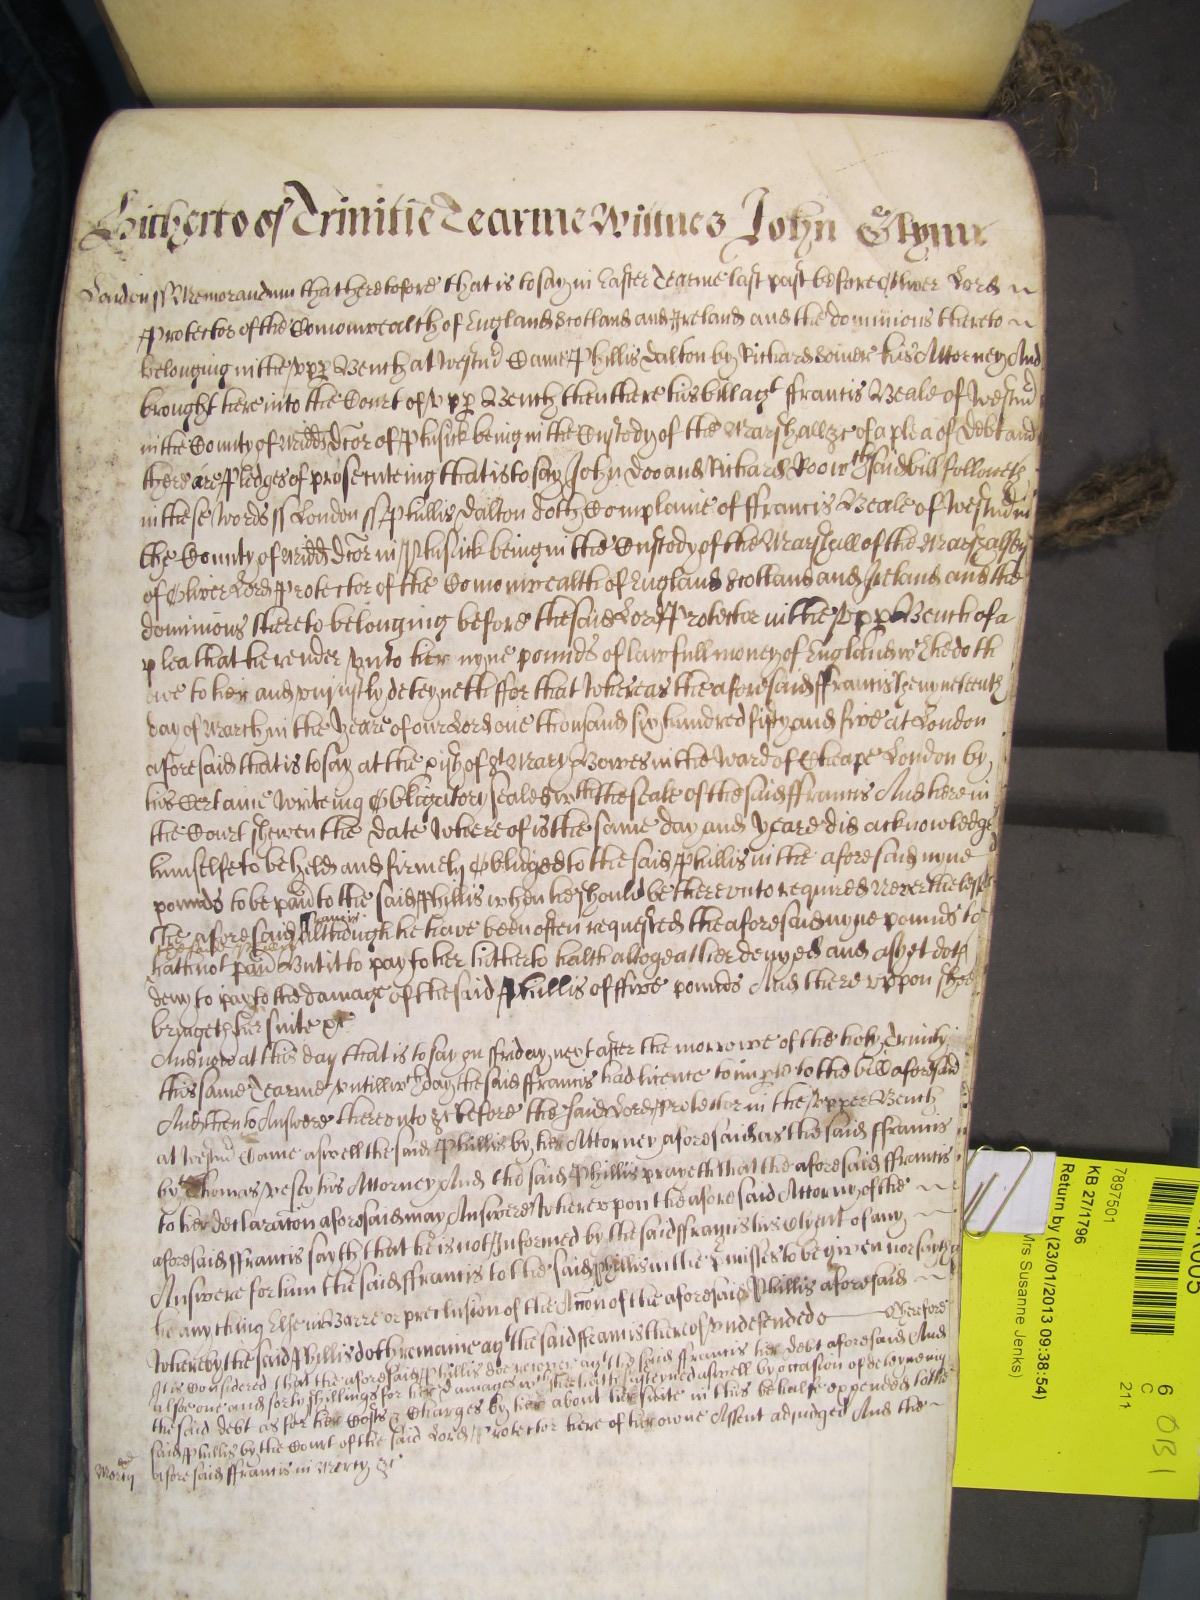 Hitherto of Trinitie Tearme Wittnes John Glynn
London ss Memorandum that heretofore that is to say in Easter Tearme last past before Oliver Lord
Protector of the Comonwealth of England Scotland and Ireland and the dominions thereto
belonging in the upp Bench at Westmr Came Phillis Dalton by Richard his Attorney And
brought here into the Court of upp Bench then there his bill agt ffrancis Beale of Westmr
in the County of Midd Dcor of Phisick being in the Custody of the Marshall &c of a plea of Debt and
there are Pledges of prosecuteing that is to say John Doo and Richard Roo wch said bill followeth
in these words ss London ss Phillis Dalton doth Complaine of ffrancis Beale of Westmr in
the County of Midd Dcor in Phisick being in the Custody of the Marshall of the Marshalsey
of Oliver Lord Protector of the Comonwealth of England Scotland and Ireland and the
dominions thereto belonging before the said Lord Protector in the upp Bench of a
plea that he render unto her nyne pounds of lawfull money of England wch he doth
owe to her and unjustly deteyneth ffor that whereas the aforesaid ffrancis the nyneteenth
day of March in the yeare of our Lord one thousand six hundred fifty and five at London
aforesaid that is to say at the pish of St Mary Bowes in the Ward of Cheape London by
his Certaine writeing Obligatory sealed wth the seale of the said ffrancis And here in
the Court shewen the date whereof is the same day and yeare did acknowledge
himselfe to be held and firmely Obliged to the said Phillis in the aforesaid nyne
pounds to be paid to the said Phillis when he should be thereunto required Neverthelesse
the aforesaid ffrancis Although he have been often requested the aforesaid nyne pounds to
hath not paid But it to pay to her hitherto hath altogeather denyed and as yet doth
deny to pay to the damage of the said Phillis of ffive pounds And thereuppon shee
bringeth her suite &c
And now at this day that is to say on ffriday next after the morrowe of the holy Trinity
this same Tearme untill wch day the said ffrancis had licence to imple to the bill aforesaid
And then to Answere thereunto &c before the said Lord Protector in the upper Bench
at Westmr Came aswell the said Phillis by her Attorney aforesaid as the said ffrancis
by Thomas his Attorney And the said Phillis prayeth that the aforesaid ffrancis
to her declaracon aforesaid may Answere Whereupon the aforesaid Attorny of the
aforesaid ffrancis sayth that he is not Informed by the said ffrancis his Clyent of any
Answere for him the said ffrancis to the said Phillis in the Pmisses to be given nor sayth
he any thing Else in Barre or preclusion of the Accon of the aforesaid Phillis aforesaid
whereby the said Phillis doth remaine agt the said ffrancis thereof undefended Therefore
It is Considered that the aforesaid Phillis doe recover agt the said ffrancis her debt aforesaid And
alsoe one and forty shillings for her damages wch she hath susteyned aswell by occasion of deteyneing
the said debt as for her Costs & Charges by her about her suite in this behalfe expended to the
said Phillis by the Court of the said Lord Protector here of her owne Assent adjudged And the
Mercy aforesaid ffrancis in Mercy &c
7897501
KB 27/1796
Return by (23/01/2013 09:38:54)
Mrs Susanne Jenks)
6
C
211